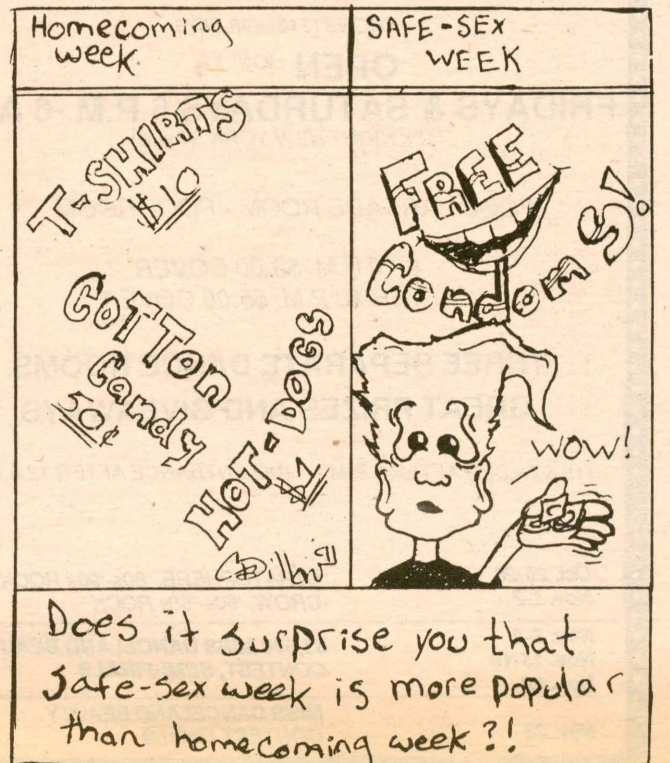 Homecoming
week
SAFE-SEX
WEEK
T-SHIRTS
$10
COTTON
Candy
50¢
HOT-DOGS
FREE
Condoms!
WOW!
Does it surprise you that
safe-sex week is more popular
than homecoming week?!